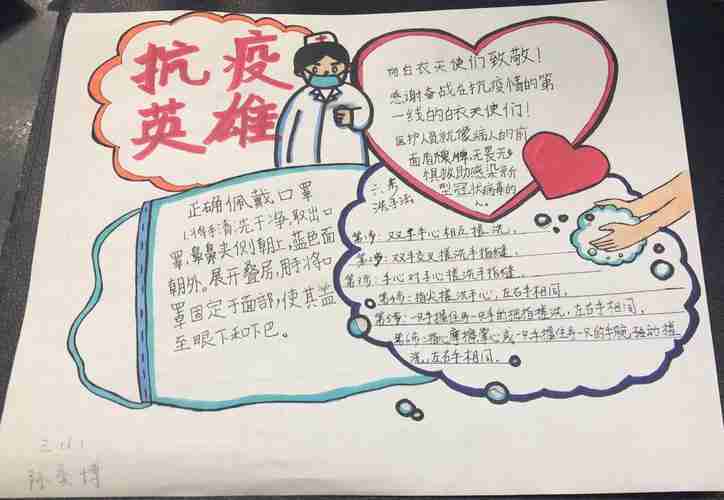 抗疫
英雄
向白衣天使们致敬！
感谢奋战在抗疫情的第
一线的白衣天使们！
医护人员就像病人的前
面盾牌，无畏无
惧救助感染新
型冠状病毒的
人。
正确佩戴口罩
1.将手清洗干净，取出口
罩，鼻夹侧朝上，蓝色面
朝外。展开叠层，用手将口
罩固定于面部，使其盖
至眼下和下巴。
六步
洗手法
第1步：双手手心相互搓洗。
第2步：双手交叉搓洗手指缝。
第3步：手心对手心搓洗手指缝。
第4步：指尖搓洗手心，左右手相同。
第5步：一只手握住另一只手的拇指搓洗，左右手相同。
第6步：指尖摩擦掌心或一只手握住另一只的手腕转的搓
洗，左右手相同。
三.(6)